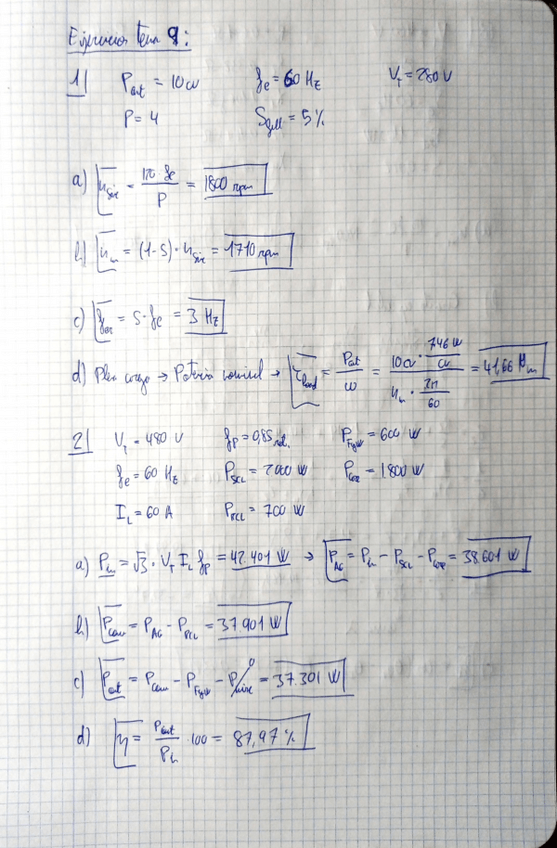 Ejercicios tema 9:
1) Pout = 10 CV fe = 60 Hz VT = 280 V
P = 4 Sfull = 5 %
a) nsinc = 120 fe / P = 1800 rpm
b) nm = (1-S) · nsinc = 1710 rpm
c) = S · fe = 3 Hz
d) Plena carga → Potencia nominal → τload = Pout / ω = 10 CV · 746 W / CV / nm · 2π / 60 = 41,66 Nm
2) VT = 480 V fp = 0,85 PF&W = 600 W
fe = 60 Hz PSCL = 2000 W Pcore = 1800 W
IL = 60 A PRCL = 700 W
a) Pin = √3 · VT IL fp = 42.401 W → PAG = Pin - PSCL - Pcore = 38.601 W
b) Pconv = PAG - PRCL = 37.901 W
c) Pout = Pconv - PF&W - Pmisc 0 = 37.301 W
d) η = Pout / Pin · 100 = 87,97 %